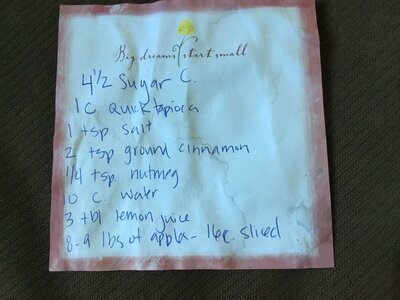 Big dreams start small
4 1/2 Sugar C.
1 C Quick tapioca
1 tsp. Salt
2 tsp ground cinnamon
1/4 tsp. nutmeg
10 C. water
3 tbl lemon juice
8-9 lbs of apples - 16c. sliced